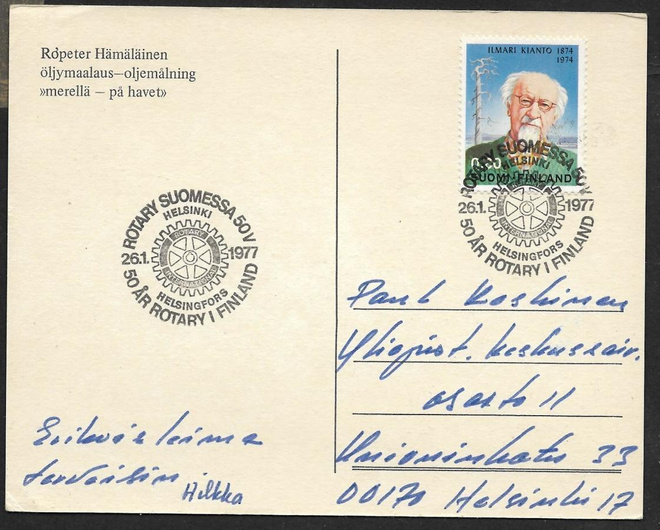 Ropeter Hämäläinen
öljymaalaus–oljemålning
»merellä – på havet»
ILMARI KIANTO 1874
1974
0,60
SUOMI-FINLAND
ROTARY SUOMESSA 50V
HELSINKI
26.1. 1977
ROTARY
INTERNATIONAL
HELSINGFORS
50 ÅR ROTARY I FINLAND
ROTARY SUOMESSA 50V
HELSINKI
26.1. 1977
INTERNATIONAL
HELSINGFORS
50 ÅR ROTARY I FINLAND
Erikoisleima
terveisin
Hilkka
Koskinen
Yliopist. keskussair.
osasto 11
Unioninkatu 33
00170 Helsinki 17